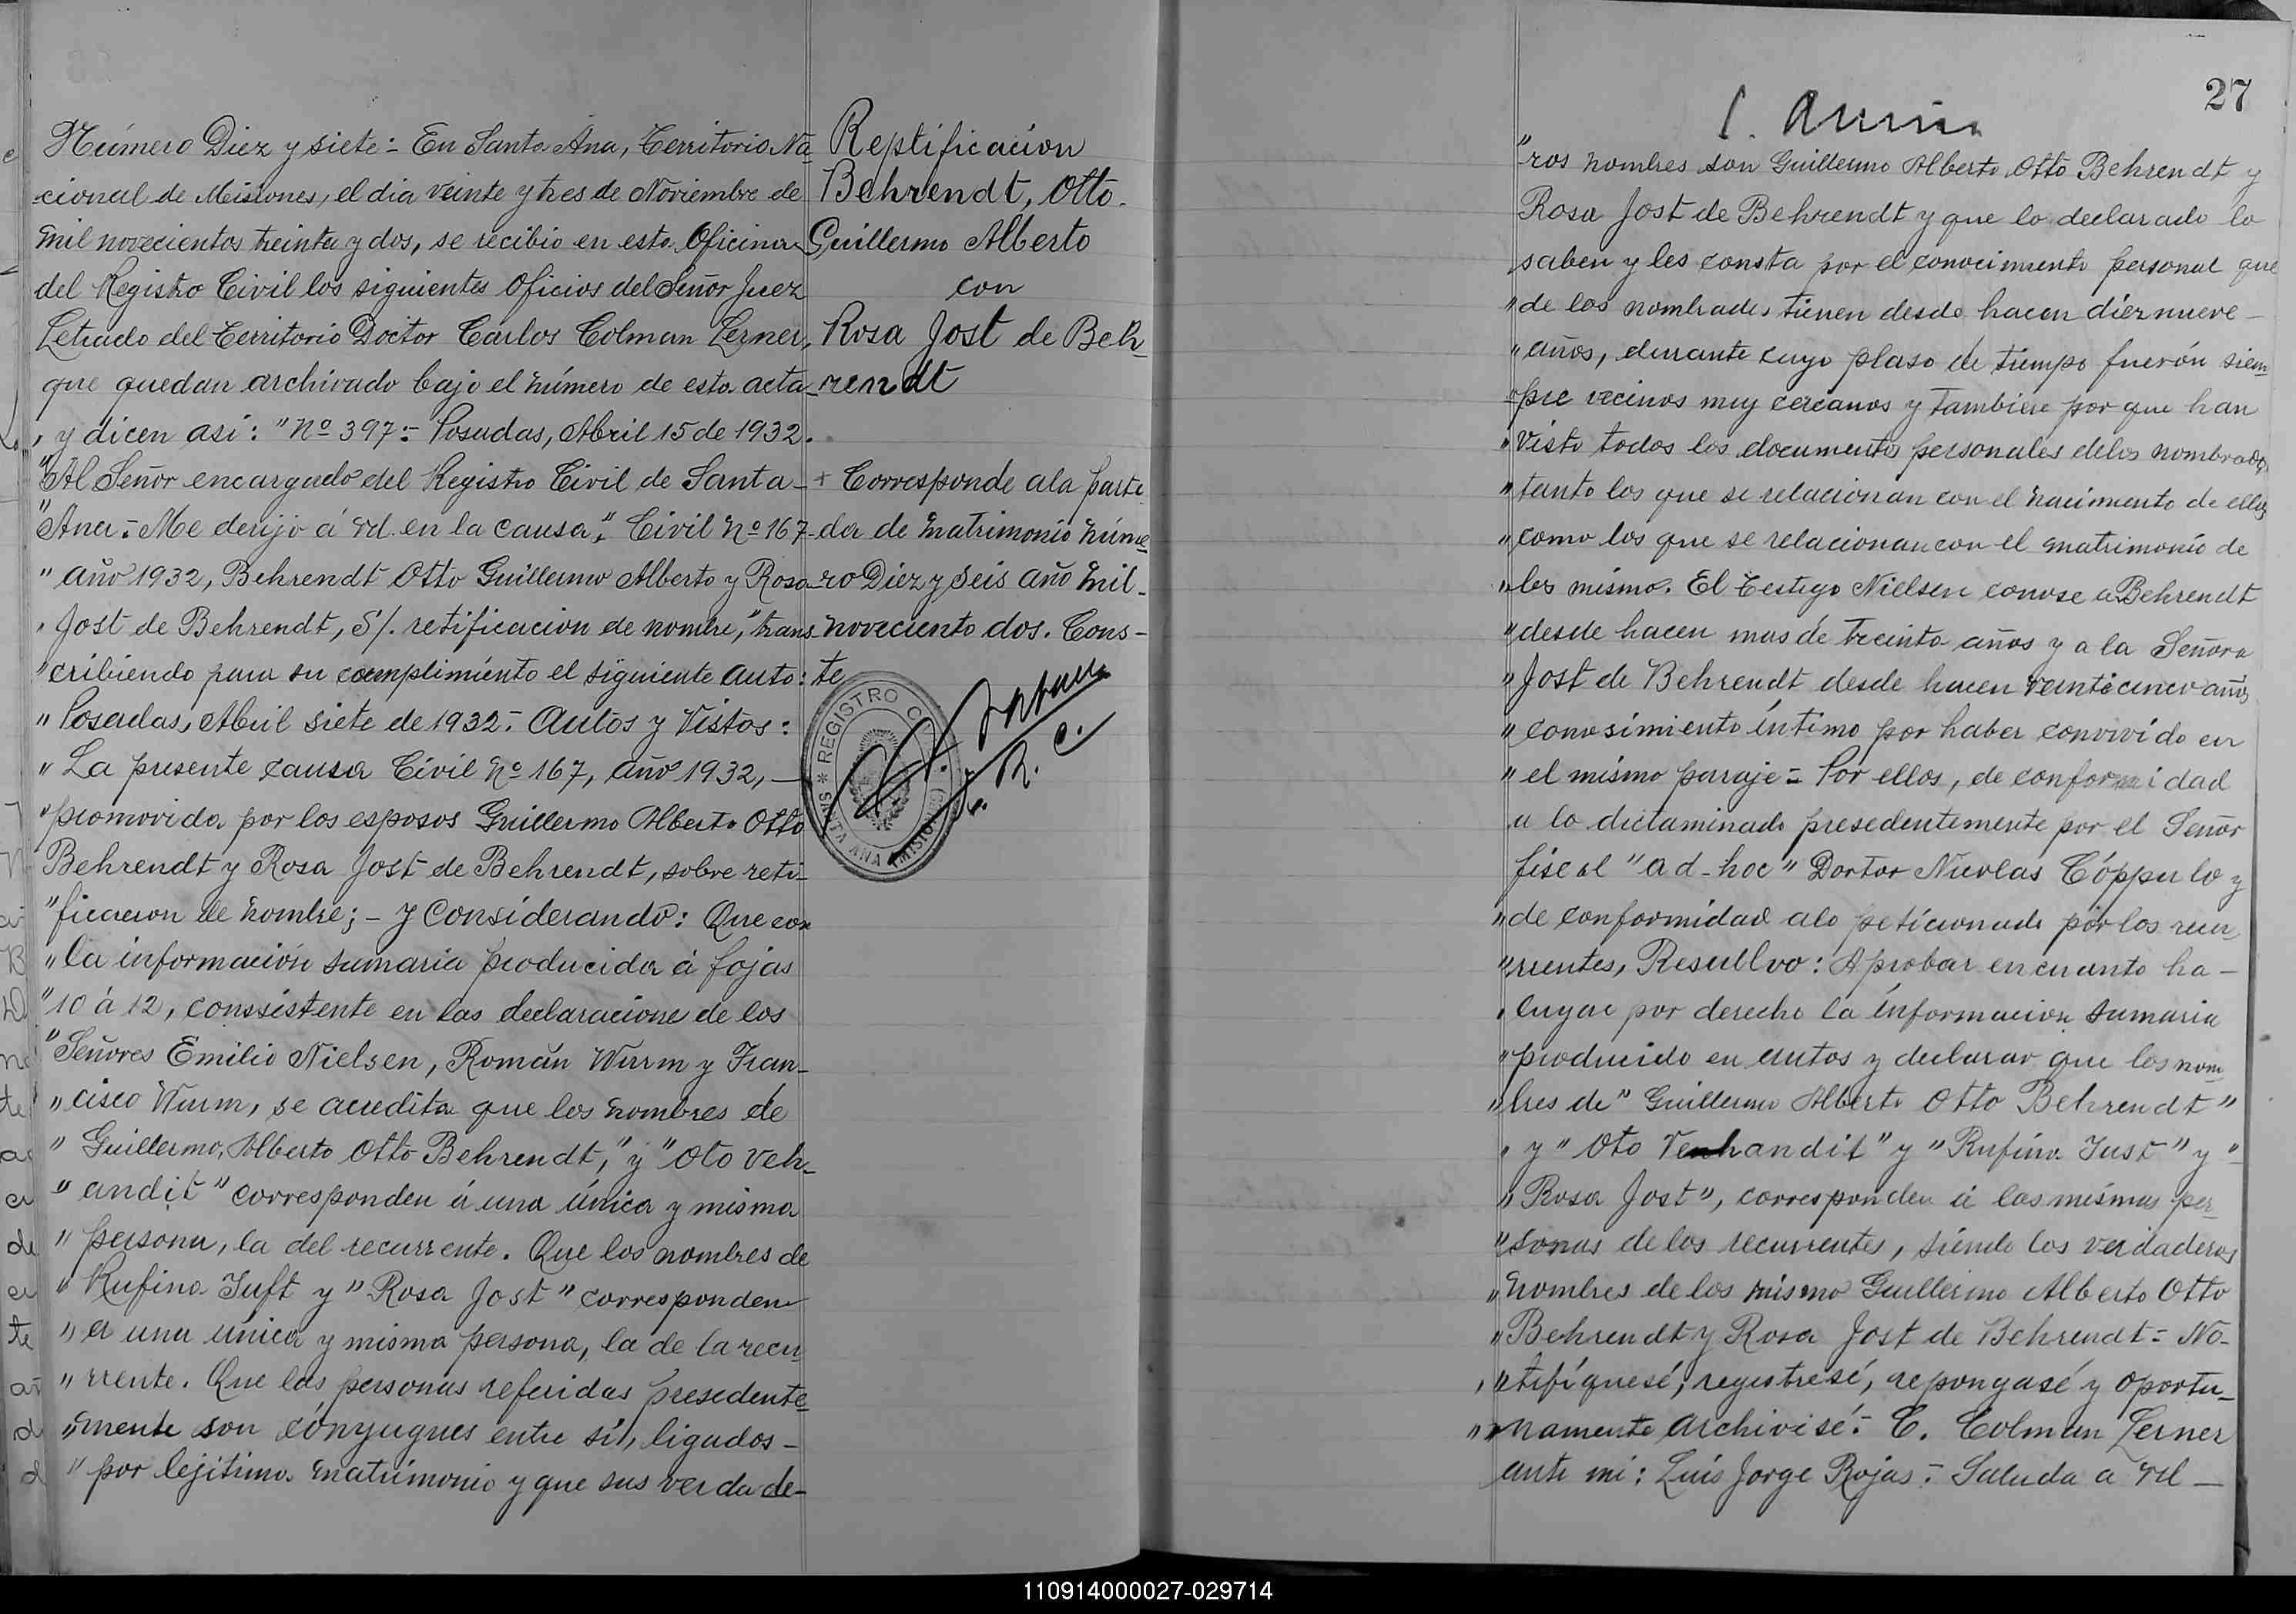 Número Diez y siete:- En Santa Ana, Territorio Na-
cional de Misiones, el dia veinte y tres de Noviembre de
mil novecientos treinta y dos, se recibio en esta Oficina
del Registro Civil los siguientes Oficios del Señor Juez
Letrado del Territorio Doctor Carlos Colman Lerner,
que quedan archivado bajo el número de esta acta
, y dicen asi: "Nº 397:- Posadas, Abril 15 de 1932.
"Al Señor encargado del Registro Civil de Santa-
"Ana:- Me derijo á Vd. en la causa," Civil Nº 167-
" año 1932, Behrendt Otto Guillermo Alberto y Rosa
" Jost de Behrendt, S/. retificacion de nombre," trans-
"cribiendo para su complimiento el siguiente auto:
" Posadas, Abril siete de 1932:- Autos y Vistos:
" La presente causa Civil Nº 167, año 1932,-
"promovida por los esposos Guillermo Alberto Otto
Behrendt y Rosa Jost de Behrendt, sobre reti-
"ficacion de nombre;- y Considerando: Que con
"la información sumaria producida á fojas
"10 á 12, conssistente en las declaracione de los
"Señores Emilio Nielsen, Román Wurm y Fran-
"cisco Wurm, se acredita que los nombres de
" Guillermo, Alberto Otto Behrendt," y "Oto Veh-
" andit" corresponden á una única y misma
" persona, la del recurrente. Que los nombres de
" Rufina Juft y "Rosa Jost" corresponden
" a una única y misma persona, la de la recu-
" rrente. Que las personas referidas presedente-
"mente son cónyugues entre sí, ligados-
" por lejitimo matrimonio y que sus verdade-
Reptificacion
Behrendt, Otto
Guillermo Alberto
con
Rosa Jost de Beh-
rendt
+ Corresponde ala parti-
da de matrimonio núme-
ro Diez y Seis año mil-
noveciento dos. Cons-
te
REGISTRO C
SANTA ANA (MISIONES)
E. R. C.
27
"ros nombres son Guillermo Alberto Otto Behrendt y
Rosa Jost de Behrendt y que lo declarado lo
saben y les consta por el conocimiento personal que
"de los nombrados tienen desde hacen diez nueve-
"años, durante cuyo plaso de tiempo fuerón siem-
"pre vecinos muy cercanos y tambien por que han
"visto todos los documentos personales delos nombrados
"tanto los que se relacionan con el nacimiento de ellos
"como los que se relacionan con el matrimonio de
"los mismo. El testigo Nielsen conose a Behrendt
"desde hacen mas de treinta años y a la Señora
"Jost de Behrendt desde hacen veinticinco años
"conosimiento íntimo por haber convivido en
"el mismo paraje:- Por ellos, de conformidad
a lo dictaminado presedentemente por el Señor
fiscal "ad-hoc" Dortor Nicolas Cóppulo y
"de conformidad alo peticionado por los recu-
"rrentes, Resuelvo: Aprobar en cuanto ha-
"lugar por derecho la información sumaria
"producido en autos y declarar que los nom-
"bres de "Guillermo Alberto Otto Behrendt"
" y "Oto Venhandit" y "Rufina Just" y "
"Rosa Jost", corresponden á las mismas per-
"sonas delos recurrentes, siendo los verdaderos
"nombres de los mismo Guillermo Alberto Otto
"Behrendt y Rosa Jost de Behrendt:- No-
"tifíquesé, registresé, repongasé y oportu-
"namente archivisé:- C. Colman Lerner
ante mi: Luis Jorge Rojas:- Saluda a Vd-
110914000027-029714